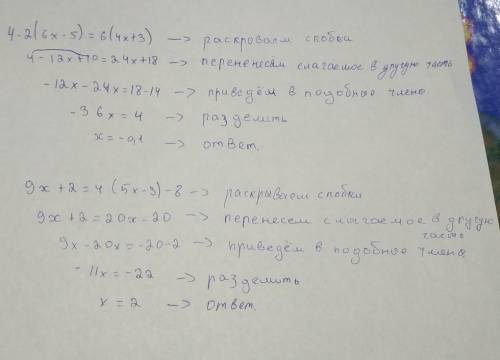 4-2(6x-5)=6(4x+3) —> раскроваем скобки
4-12x+10=24x+18 —> перененесям слагаемое в другую часть
-12x-24x=18-14 —> приведём в подобные члено
-36x=4 —> разделить
x=-0,1 —> ответ.
9x+2=4(5x-3)-8 —> раскрываем скобки
9x+2=20x-20 —> перенесем слагаемое в другую часть
9x-20x=-20-2 —> приведём в подобные члена
-11x=-22 —> разделить
x=2 —> ответ.